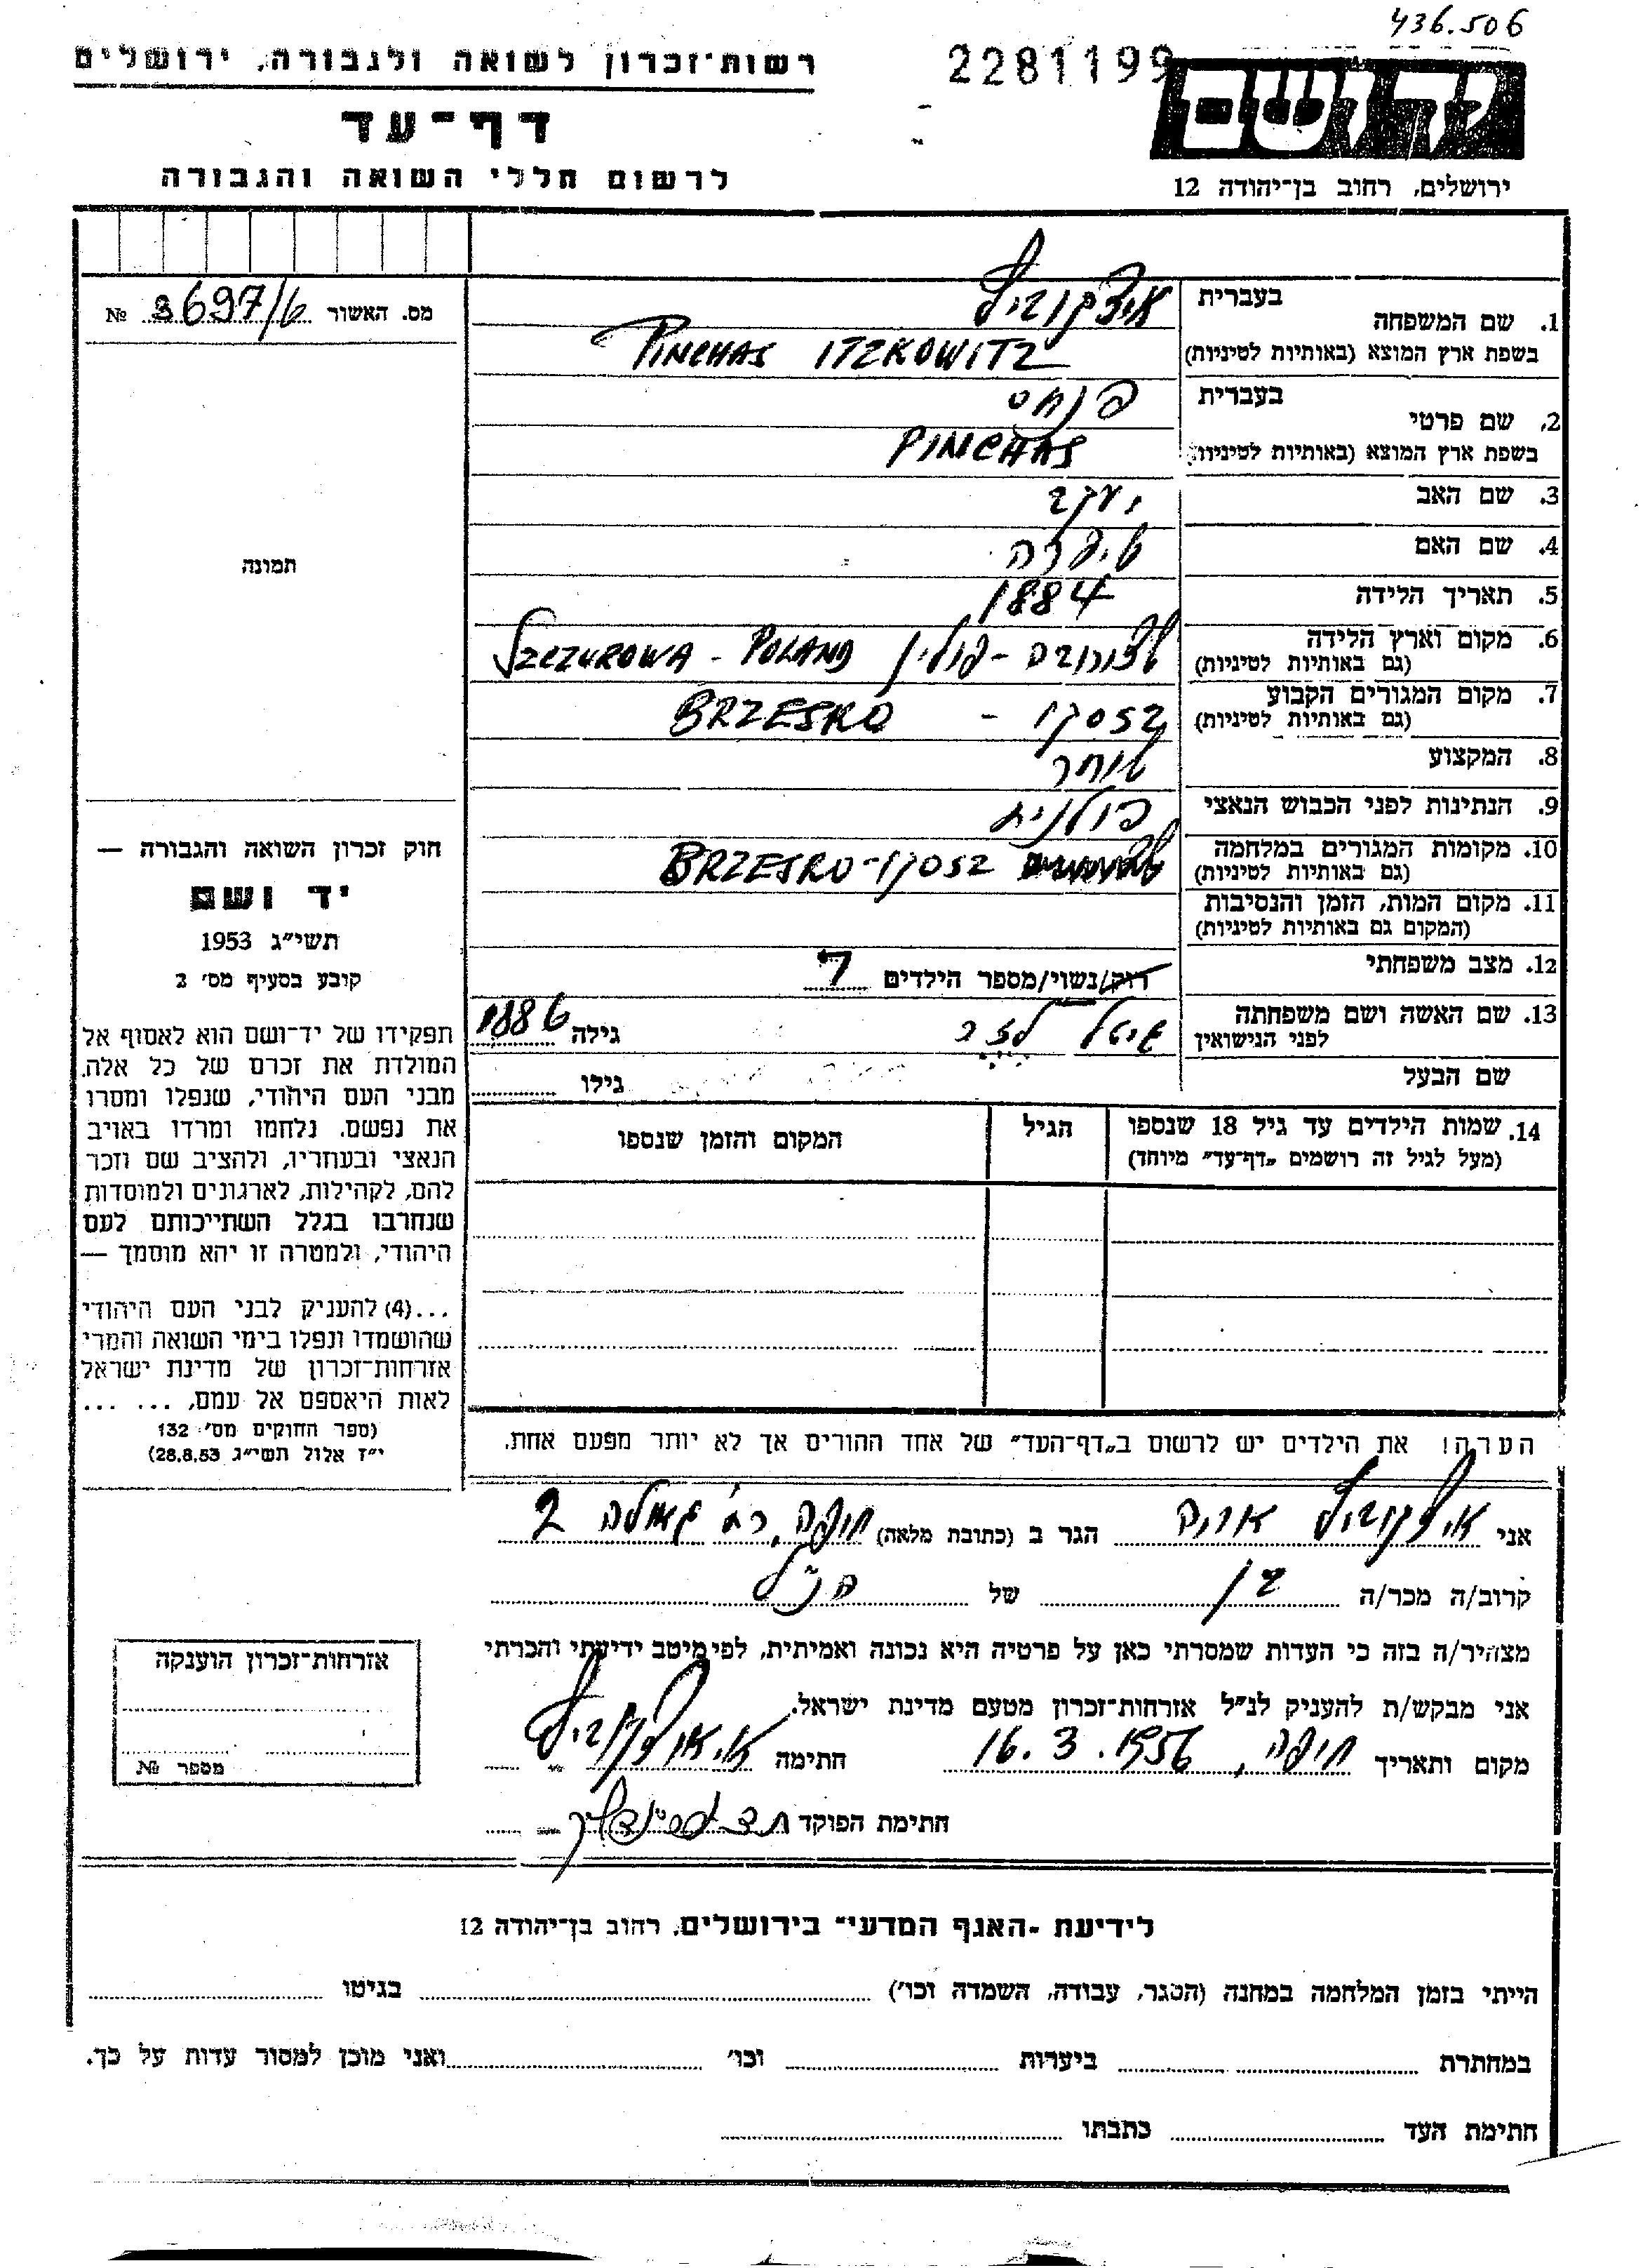 436.506
רשות־זכרון לשואה ולגבורה, ירושלים
2281199
דף־עד
לרשום חללי השואה והגבורה
ירושלים, רחוב בן־יהודה 12
מס. האשור 3697/6 №
1. שם המשפחה בעברית איצקוביץ
בשפת ארץ המוצא (באותיות לטיניות) PINCHAS ITZKOWITZ
2. שם פרטי בעברית פנחס
בשפת ארץ המוצא (באותיות לטיניות) PINCHAS
3. שם האב יעקב
4. שם האם
5. תאריך הלידה 1884
6. מקום וארץ הלידה (גם באותיות לטיניות) שצורובה - פולין SZCZUROWA - POLAND
7. מקום המגורים הקבוע (גם באותיות לטיניות) בזסקו - BRZESKO
8. המקצוע סוחר
9. הנתינות לפני הכבוש הנאצי פולנית
10. מקומות המגורים במלחמה (גם באותיות לטיניות) בזסקו - BRZESKO
11. מקום המות, הזמן והנסיבות
(המקום גם באותיות לטיניות)
12. מצב משפחתי רווק/נשוי/מספר הילדים 7
13. שם האשה ושם משפחתה לפני הנישואין גיטל גילה 1886
שם הבעל גילו
14. שמות הילדים עד גיל 18 שנספו הגיל המקום והזמן שנספו
(מעל לגיל זה רושמים „דף־עד" מיוחד)
הערה! את הילדים יש לרשום ב„דף־העד" של אחד ההורים אך לא יותר מפעם אחת.
תמונה
חוק זכרון השואה והגבורה —
יד ושם
תשי"ג 1953
קובע בסעיף מס' 2
תפקידו של יד־ושם הוא לאסוף אל
המולדת את זכרם של כל אלה,
מבני העם היהודי, שנפלו ומסרו
את נפשם, נלחמו ומרדו באויב
הנאצי ובעוזריו, ולהציב שם וזכר
להם, לקהילות, לארגונים ולמוסדות
שנחרבו בגלל השתייכותם לעם
היהודי, ולמטרה זו יהא מוסמך —
...(4) להעניק לבני העם היהודי
שהושמדו ונפלו בימי השואה והמרי
אזרחות־זכרון של מדינת ישראל
לאות היאספם אל עמם, ... ...
(ספר החוקים מס' 132
י"ז אלול תשי"ג 28.8.53)
אני איצקוביץ אריה הגר ב (כתובת מלאה) חיפה, רח' גאולה 2
קרוב/ה מכר/ה בן של הנ"ל
מצהיר/ה בזה כי העדות שמסרתי כאן על פרטיה היא נכונה ואמיתית, לפי מיטב ידיעתי והכרתי
אני מבקש/ת להעניק לנ"ל אזרחות־זכרון מטעם מדינת ישראל.
מקום ותאריך חיפה, 16.3.1956 חתימה א. איצקוביץ
חתימת הפוקד
אזרחות־זכרון הוענקה
מספר №
לידיעת „האגף המדעי" בירושלים, רחוב בן־יהודה 12
הייתי בזמן המלחמה במחנה (הסגר, עבודה, השמדה וכו') בגיטו
במחתרת ביערות וכו' ואני מוכן למסור עדות על כך.
חתימת העד כתבתו